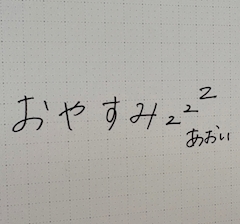 おやすみ zzz
あおい